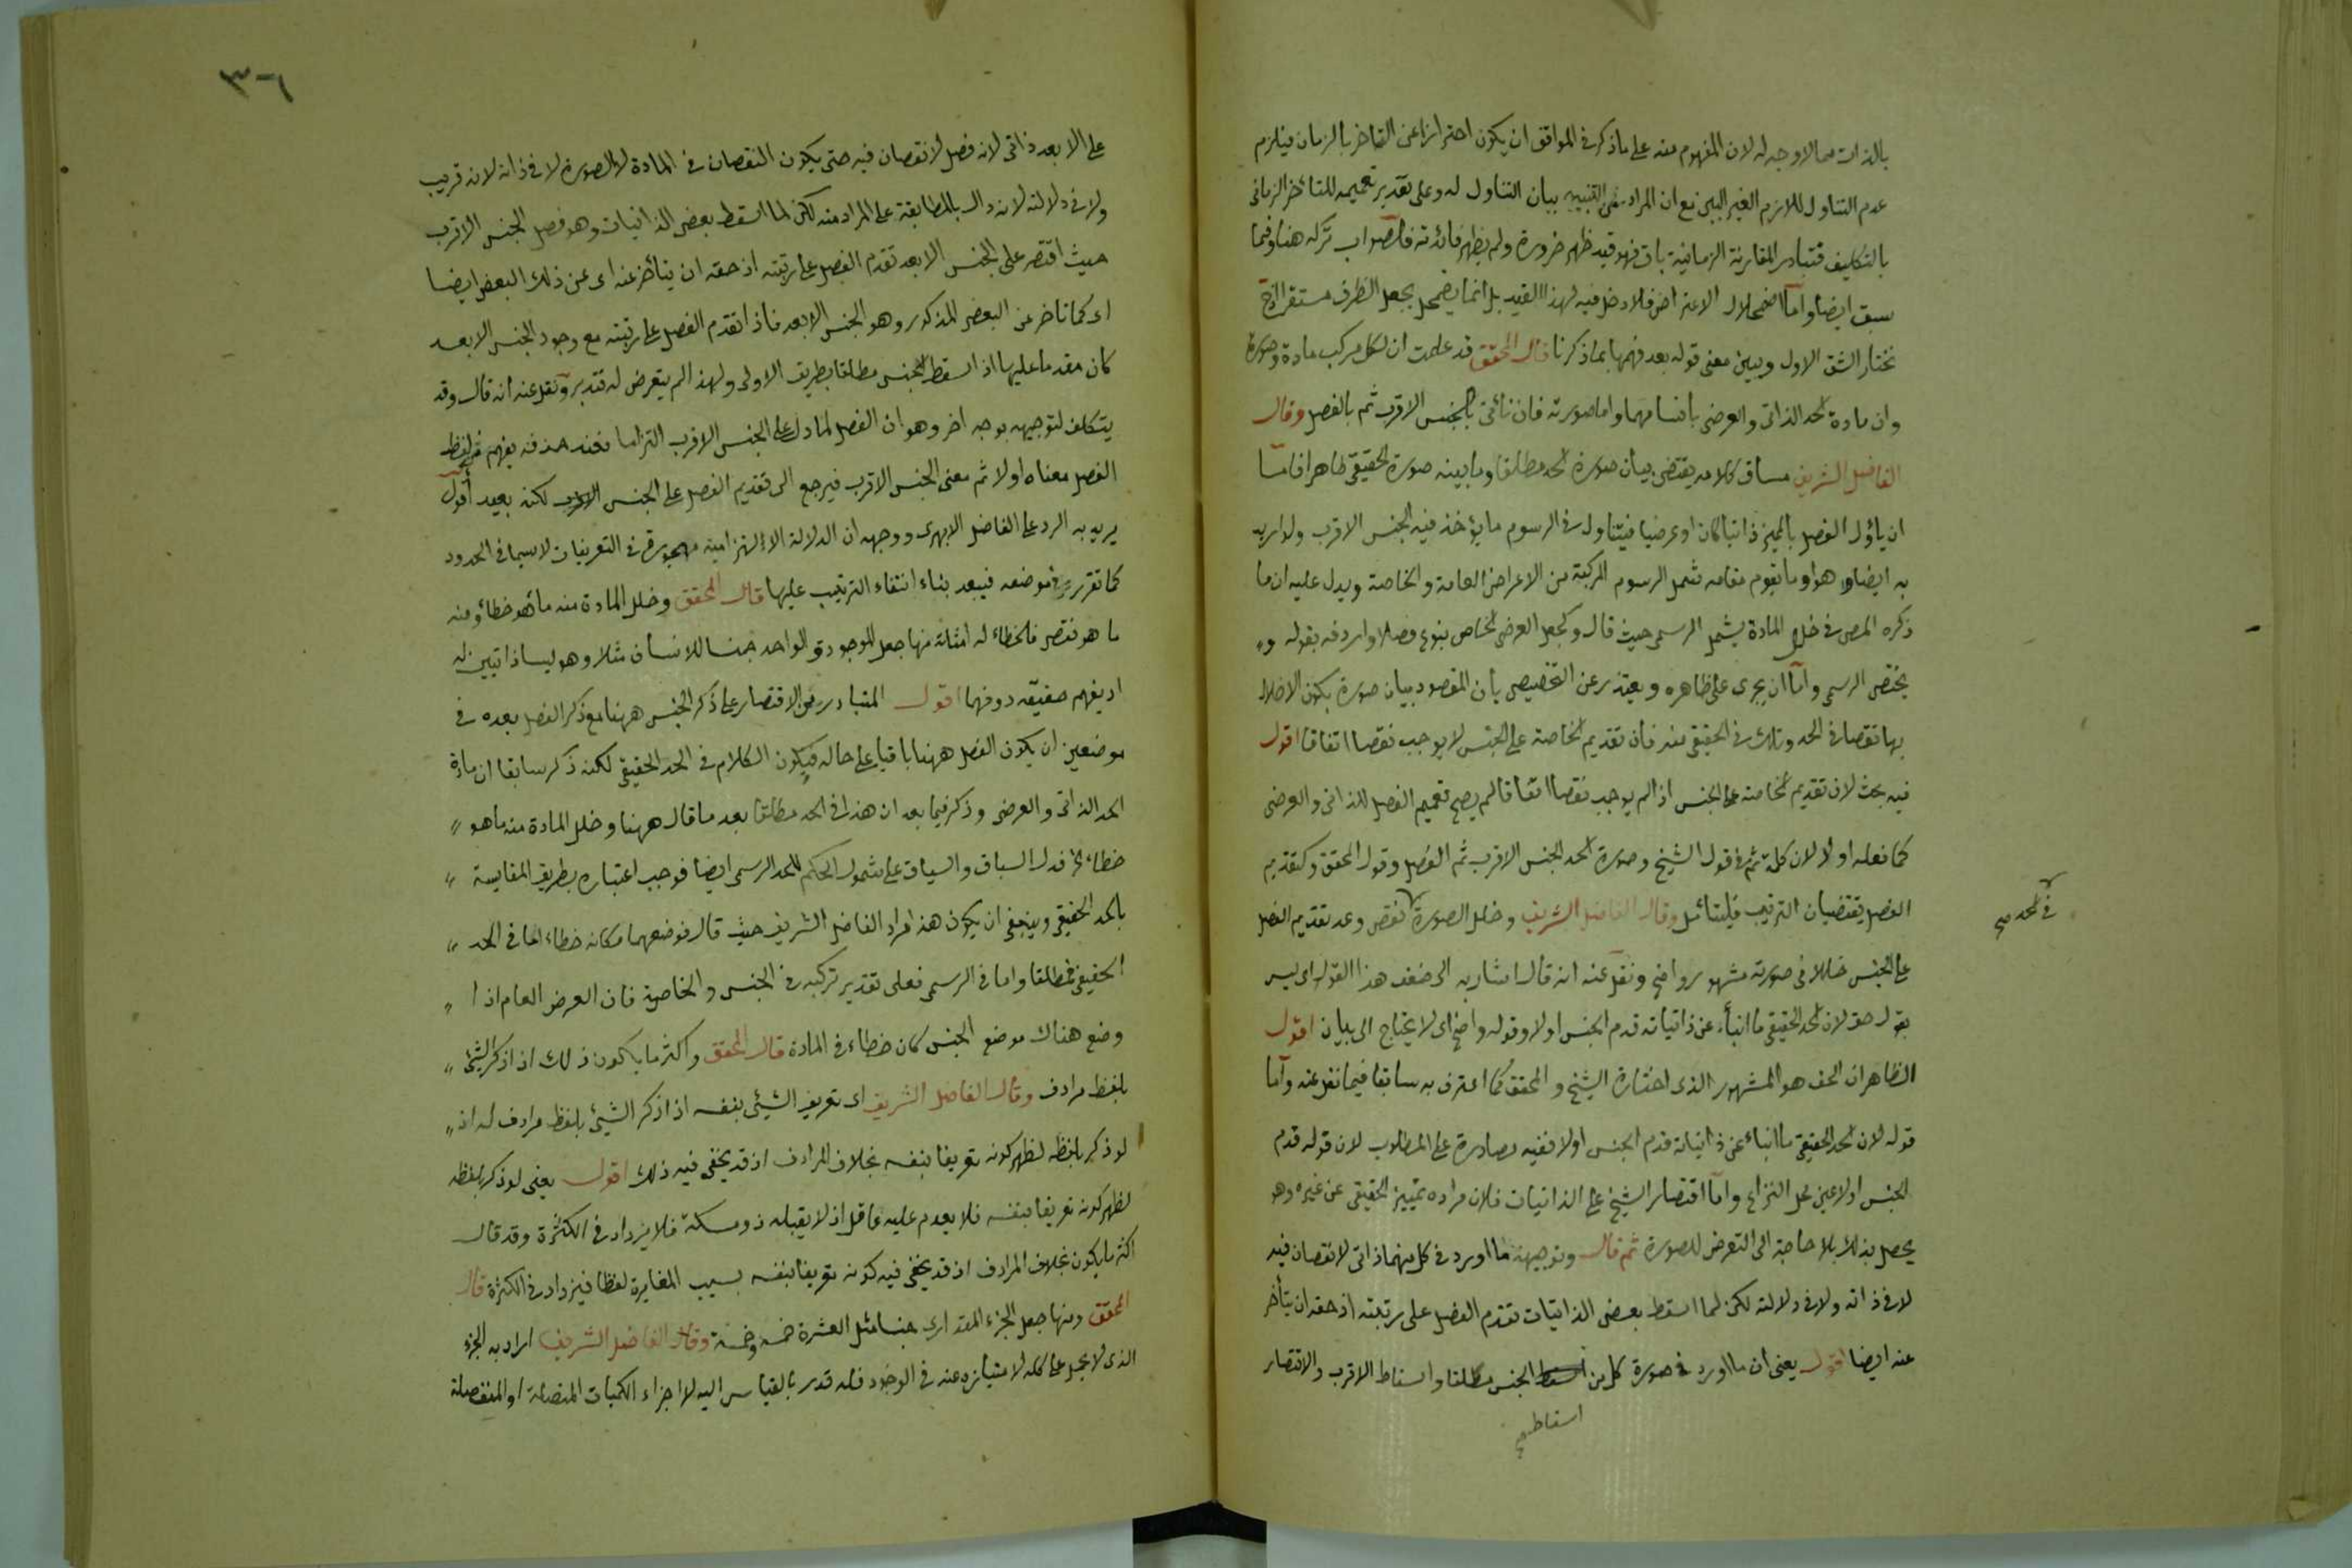 بالذات مما لا وجه له لان المفهوم منه على ما ذكر في المواقف ان يكون احترازا عن التاخر بالزمان فيلزم
عدم التناول للازم الغير البين مع ان المراد من التنبيه بيان التناول له وعلى تقدير تعميمه للتأخر الزماني
بالتكليف فتبادر المقارنة الزمانية باق فهو قيد ظهر ضرورة ولم يظهر فائدته فالصواب تركه هنا وفيما
سبق ايضا وأما اضمحلال الاعتراض فلا دخل فيه لهذا القيد بل انما يضمحل بجعل الظرف مستقرا
نختار الشق الاول ويبين معنى قوله بعد فهمها بما ذكرنا قال المحقق قد علمت ان لكل مركب مادة وصورة
وان مادة الحد الذاتي والعرضي باقسامهما واما صورته فان تأتي بالجنس الاقرب ثم بالفصل وقال
الفاضل الشريف مساق كلامه يقتضي بيان صورة الحد مطلقا وما بينه صورة الحقيقي ظاهرا فاما
ان يأول الفصل بالمميز ذاتيا كان او عرضيا فيتناول في الرسوم ما يؤخذ فيه الجنس الاقرب ولو اريد
به ايضا هو او ما يقوم مقامه شمل الرسوم المركبة من الاعراض العامة والخاصة ويدل عليه ان ما
ذكره المص في خلل المادة يشمل الرسمي حيث قال وكجعل العرضي الخاص بنوع فصلا واردفه بقوله و
يختص الرسمي وأما ان يجرى على ظاهره ويعتذر عن التخصيص بأن المقصود بيان صورة يكون الاخلال
بها نقصا في الحد وذلك في الحقيقي منه فان تقديم الخاصة على الجنس لا يوجب نقصا اتفاقا اقول
فيه بحث لان تقديم الخاصة على الجنس اذا لم يوجب نقصا اتفاقا لم يصح تعميم الفصل للذاتي والعرضي
كما فعله اولا لان كلمة ثم في قول الشيخ وصورة الحد الجنس الاقرب ثم الفصل وقول المحقق وكتقديم
الفصل يقتضيان الترتيب فليتأمل وقال الفاضل الشريف وخلل الصورة نقص وعد تقديم الفصل
في الحد صح
على الجنس خللا في صورته مشهور واضح ونقل عنه انه قال اشار به الى ضعف هذا القول اى ليس
بقول حق لان الحد الحقيقي ما انبأ عن ذاتياته قدم الجنس اولا وقوله واضح اى لا يحتاج الى بيان اقول
الظاهر ان الحق هو المشهور الذى اختاره الشيخ والمحقق كما اعترف به سابقا فيما نقل عنه وأما
قوله لان الحد الحقيقي ما انباء عن ذاتياته قدم الجنس اولا ففيه مصادرة على المطلوب لان قوله قدم
الجنس اولا عين محل النزاع وأما اقتصار الشيخ على الذاتيات فلان مراده تمييز الحقيقي عن غيره وهو
يحصل بذلك بلا حاجة الى التعرض للصورة ثم قال وتوجيهه ما اورد في كل منهما ذاتي لا نقصان فيه
لا في ذاته ولا في دلالته لكن لما اسقط بعض الذاتيات تقدم الفصل على رتبته اذ حقه ان يتأخر
عنه ايضا اقول يعنى ان ما اورد في صورة كل من اسقاط الجنس مطلقا واسقاط الاقرب والاقتصار
اسقاط صح
٣٠٦
على الابعد ذاتي لانه فصل لا نقصان فيه حتى يكون النقصان في المادة لا الصورة لا في ذاته لانه قريب
ولا في دلالته لانه دال بالمطابقة على المراد منه لكن لما اسقط بعض الذاتيات وهو فصل الجنس الاقرب
حيث اقتصر على الجنس الابعد تقدم الفصل على رتبته اذ حقه ان يتأخر عنه اى عن ذلك البعض ايضا
اى كما تاخر عن البعض المذكور وهو الجنس الابعد فاذا تقدم الفصل على رتبته مع وجود الجنس الابعد
كان مقدما عليها اذا اسقط الجنس مطلقا بطريق الاولى ولهذا لم يتعرض له فتدبر ونقل عنه انه قال وقد
يتكلف لتوجيهه بوجه اخر وهو ان الفصل لما دل على الجنس الاقرب التزاما فعند حذفه يفهم من لفظ
الفصل معناه اولا ثم معنى الجنس الاقرب فيرجع الى تقديم الفصل على الجنس الاقرب لكنه بعيد اقول
يريد به الرد على الفاضل الابهرى ووجهه ان الدلالة الالتزامية مهجورة في التعريفات لا سيما في الحدود
كما تقرر في موضعه فيبعد بناء انتفاء الترتيب عليها قال المحقق وخلل المادة منه ما هو خطأ ومنه
ما هو نقص فالخطاء له امثلة منها جعل الموجود والواحد جنسا للانسان مثلا وهو ليسا ذاتيين له
اذ يفهم حقيقته دونهما اقول المتبادر من الاقتصار على ذكر الجنس ههنا مع ذكر الفصل بعده في
موضعين ان يكون الفصل ههنا باقيا على حاله فيكون الكلام في الحد الحقيقي لكنه ذكر سابقا ان مادة
الحد الذاتي والعرضي وذكر فيما بعد ان هذا في الحد مطلقا بعد ما قال ههنا وخلل المادة منه ما هو
خطاء الخ فدل السباق والسياق على شمول الحكم للحد الرسمي ايضا فوجب اعتباره بطريق المقايسة
بالحد الحقيقي وينبغي ان يكون هذا مراد الفاضل الشريف حيث قال فوضعهما مكانه خطاء اما في الحد
الحقيقي فمطلقا واما في الرسمي فعلى تقدير تركبه من الجنس والخاصة فان العرض العام اذا
وضع هناك موضع الجنس كان خطاء في المادة قال المحقق واكثر ما يكون ذلك اذا ذكر الشئ
بلفظ مرادف وقال الفاضل الشريف اى تعريف الشئ بنفسه اذا ذكر الشئ بلفظ مرادف له اذ
لو ذكر بلفظه لظهر كونه تعريفا بنفسه بخلاف المرادف اذ قد يخفى فيه ذلك اقول يعنى لو ذكر بلفظه
لظهر كونه تعريفا بنفسه فلا يقدم عليه عاقل اذ لا يقبله ذو مسكة فلا يزداد في الكثرة وقد قال
اكثر ما يكون بخلاف المرادف اذ قد يخفى فيه كونه تعريفا بنفسه بسبب المغايرة لفظا فيزداد في الكثرة قال
المحقق ومنها جعل الجزء المقدارى جنسا مثل العشرة خمسة وخمسة وقال الفاضل الشريف اراد به الجزء
الذى لا يحمل على كله لامتيازه عنه في الوجود فله قدر بالقياس اليه لا اجزاء الكميات المتصلة او المنفصلة